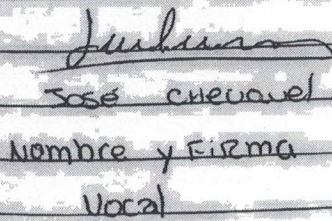 José Chevquel
Nombre y Firma
Vocal